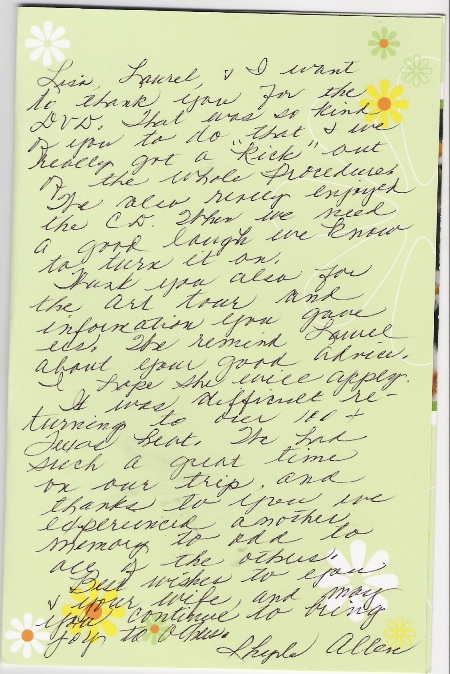 Lisa Laurel, & I want
to thank you for the
DVD. That was so kind
of you to do that & we
really got a "kick" out
of the whole Procedures
We also really enjoyed
the C.D. When we need
a good laugh we know
to turn it on.
Thank you also for
the art tour and
information you gave
us. We remind Laurel
about your good advice.
I hope she will apply.
It was difficult re-
turning to our 100 +
Texas heat. We had
such a great time
on our trip, and
thanks to you we
experienced another
memory to add to
all of the others.
Best wishes to you
& your wife, and may
you continue to bring
joy to others.
Allen